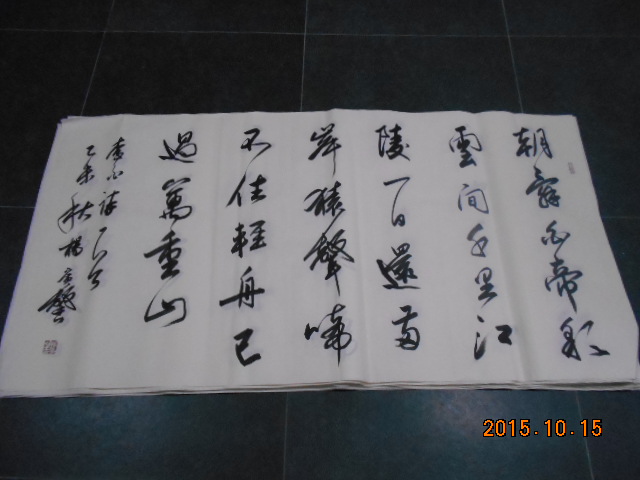 朝辞白帝彩
雲间千里江
陵一日還两
岸猿聲啼
不住輕舟已
過萬重山
李白诗一首
乙未秋楊彦
2015.10.15